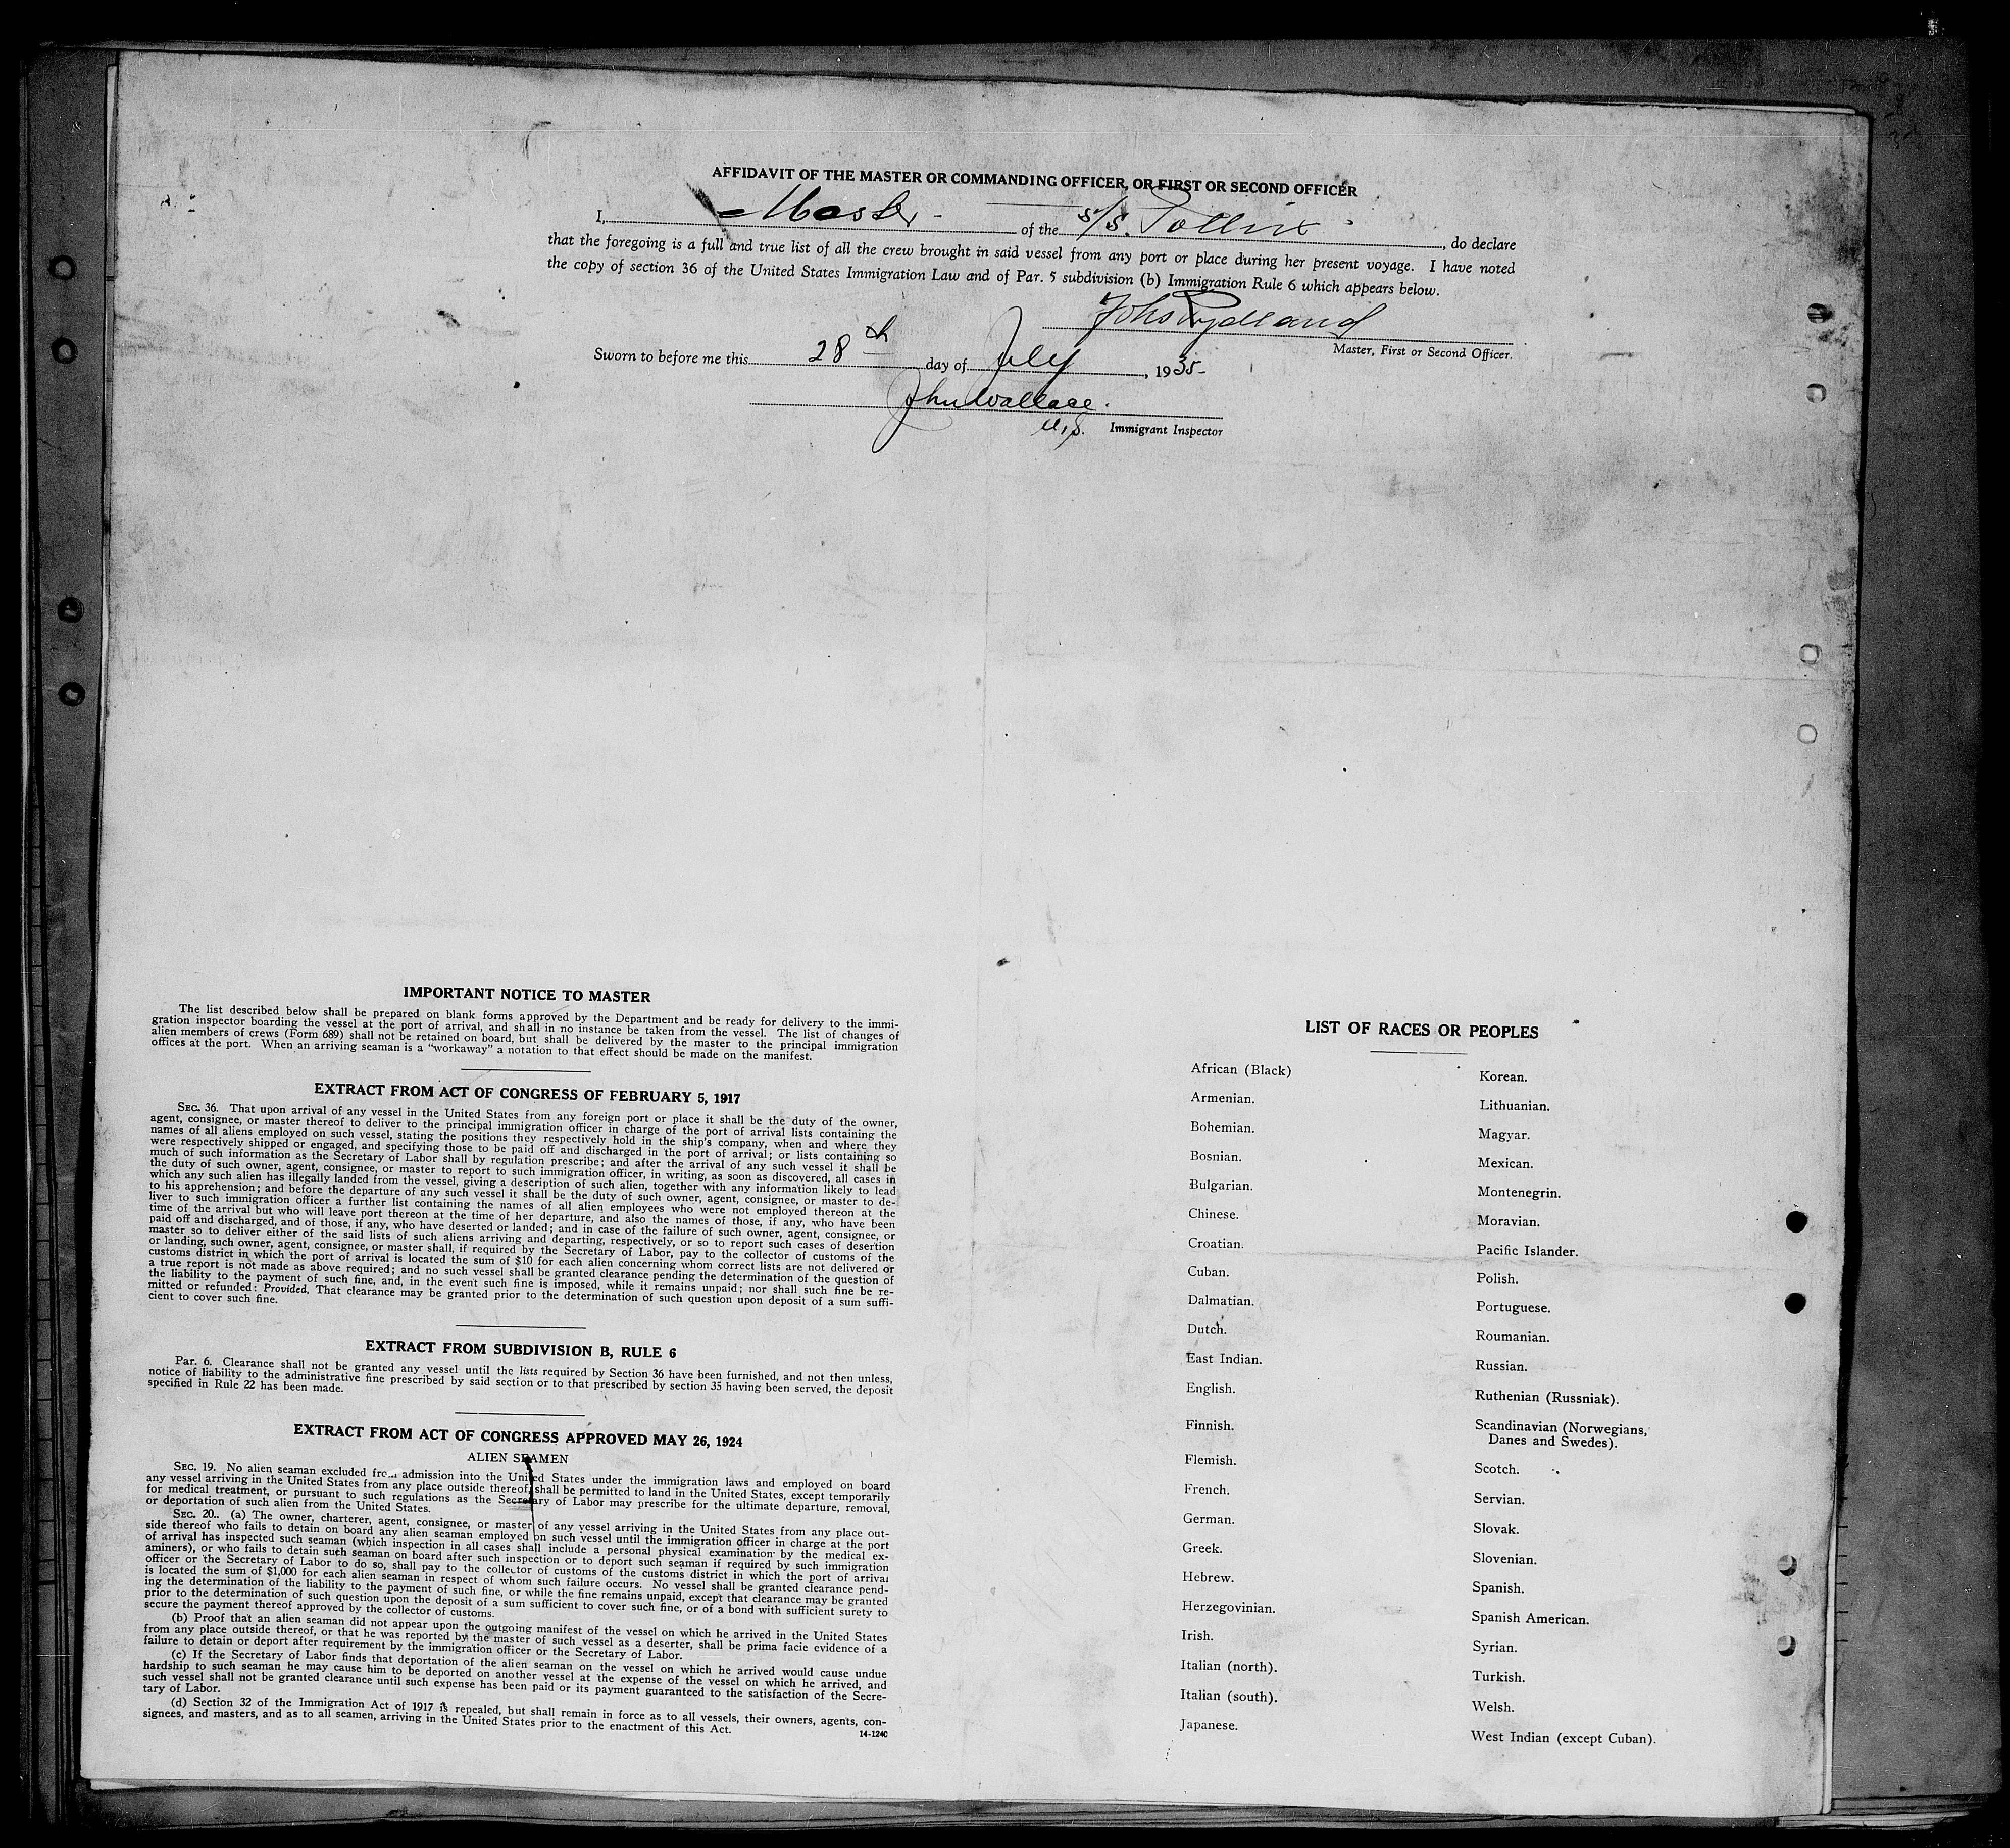 AFFIDAVIT OF THE MASTER OR COMMANDING OFFICER, OR FIRST OR SECOND OFFICER
I, Master of the s/s. Pollux, do declare
that the foregoing is a full and true list of all the crew brought in said vessel from any port or place during her present voyage. I have noted
the copy of section 36 of the United States Immigration Law and of Par. 5 subdivision (b) Immigration Rule 6 which appears below.
Master, First or Second Officer.
Sworn to before me this 28th day of July, 1935
John Wallace.
U.S. Immigrant Inspector
IMPORTANT NOTICE TO MASTER
The list described below shall be prepared on blank forms approved by the Department and be ready for delivery to the immi-
gration inspector boarding the vessel at the port of arrival, and shall in no instance be taken from the vessel. The list of changes of
alien members of crews (Form 689) shall not be retained on board, but shall be delivered by the master to the principal immigration
offices at the port. When an arriving seaman is a "workaway" a notation to that effect should be made on the manifest.
EXTRACT FROM ACT OF CONGRESS OF FEBRUARY 5, 1917
SEC. 36. That upon arrival of any vessel in the United States from any foreign port or place it shall be the duty of the owner,
agent, consignee, or master thereof to deliver to the principal immigration officer in charge of the port of arrival lists containing the
names of all aliens employed on such vessel, stating the positions they respectively hold in the ship's company, when and where they
were respectively shipped or engaged, and specifying those to be paid off and discharged in the port of arrival; or lists containing so
much of such information as the Secretary of Labor shall by regulation prescribe; and after the arrival of any such vessel it shall be
the duty of such owner, agent, consignee, or master to report to such immigration officer, in writing, as soon as discovered, all cases in
which any such alien has illegally landed from the vessel, giving a description of such alien, together with any information likely to lead
to his apprehension; and before the departure of any such vessel it shall be the duty of such owner, agent, consignee, or master to de-
liver to such immigration officer a further list containing the names of all alien employees who were not employed thereon at the
time of the arrival but who will leave port thereon at the time of her departure, and also the names of those, if any, who have been
paid off and discharged, and of those, if any, who have deserted or landed; and in case of the failure of such owner, agent, consignee, or
master so to deliver either of the said lists of such aliens arriving and departing, respectively, or so to report such cases of desertion
or landing, such owner, agent, consignee, or master shall, if required by the Secretary of Labor, pay to the collector of customs of the
customs district in which the port of arrival is located the sum of $10 for each alien concerning whom correct lists are not delivered or
a true report is not made as above required; and no such vessel shall be granted clearance pending the determination of the question of
the liability to the payment of such fine, and, in the event such fine is imposed, while it remains unpaid; nor shall such fine be re-
mitted or refunded: Provided, That clearance may be granted prior to the determination of such question upon deposit of a sum suffi-
cient to cover such fine.
EXTRACT FROM SUBDIVISION B, RULE 6
Par. 6. Clearance shall not be granted any vessel until the lists required by Section 36 have been furnished, and not then unless,
notice of liability to the administrative fine prescribed by said section or to that prescribed by section 35 having been served, the deposit
specified in Rule 22 has been made.
EXTRACT FROM ACT OF CONGRESS APPROVED MAY 26, 1924
ALIEN SEAMEN
SEC. 19. No alien seaman excluded from admission into the United States under the immigration laws and employed on board
any vessel arriving in the United States from any place outside thereof, shall be permitted to land in the United States, except temporarily
for medical treatment, or pursuant to such regulations as the Secretary of Labor may prescribe for the ultimate departure, removal,
or deportation of such alien from the United States.
SEC. 20.. (a) The owner, charterer, agent, consignee, or master of any vessel arriving in the United States from any place out-
side thereof who fails to detain on board any alien seaman employed on such vessel until the immigration officer in charge at the port
of arrival has inspected such seaman (which inspection in all cases shall include a personal physical examination by the medical ex-
aminers), or who fails to detain such seaman on board after such inspection or to deport such seaman if required by such immigration
officer or the Secretary of Labor to do so, shall pay to the collector of customs of the customs district in which the port of arrival
is located the sum of $1,000 for each alien seaman in respect of whom such failure occurs. No vessel shall be granted clearance pend-
ing the determination of the liability to the payment of such fine, or while the fine remains unpaid, except that clearance may be granted
prior to the determination of such question upon the deposit of a sum sufficient to cover such fine, or of a bond with sufficient surety to
secure the payment thereof approved by the collector of customs.
(b) Proof that an alien seaman did not appear upon the outgoing manifest of the vessel on which he arrived in the United States
from any place outside thereof, or that he was reported by the master of such vessel as a deserter, shall be prima facie evidence of a
failure to detain or deport after requirement by the immigration officer or the Secretary of Labor.
(c) If the Secretary of Labor finds that deportation of the alien seaman on the vessel on which he arrived would cause undue
hardship to such seaman he may cause him to be deported on another vessel at the expense of the vessel on which he arrived, and
such vessel shall not be granted clearance until such expense has been paid or its payment guaranteed to the satisfaction of the Secre-
tary of Labor.
(d) Section 32 of the Immigration Act of 1917 is repealed, but shall remain in force as to all vessels, their owners, agents, con-
signees, and masters, and as to all seamen, arriving in the United States prior to the enactment of this Act.
14-1240
LIST OF RACES OR PEOPLES
African (Black)
Armenian.
Bohemian.
Bosnian.
Bulgarian.
Chinese.
Croatian.
Cuban.
Dalmatian.
Dutch.
East Indian.
English.
Finnish.
Flemish.
French.
German.
Greek.
Hebrew.
Herzegovinian.
Irish.
Italian (north).
Italian (south).
Japanese.
Korean.
Lithuanian.
Magyar.
Mexican.
Montenegrin.
Moravian.
Pacific Islander.
Polish.
Portuguese.
Roumanian.
Russian.
Ruthenian (Russniak).
Scandinavian (Norwegians,
Danes and Swedes).
Scotch.
Servian.
Slovak.
Slovenian.
Spanish.
Spanish American.
Syrian.
Turkish.
Welsh.
West Indian (except Cuban).